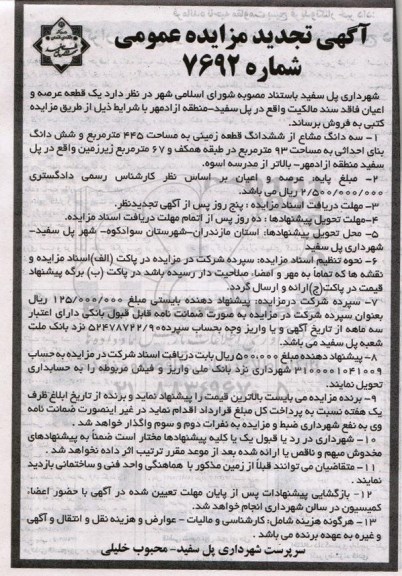 آگهی تجدید مزایده عمومی
شماره ۷۶۹۲
شهرداری پل سفید باستناد مصوبه شورای اسلامی شهر در نظر دارد یک قطعه عرصه و
اعیان فاقد سند مالکیت واقع در پل سفید-منطقه ازادمهر با شرایط ذیل از طریق مزایده
کتبی به فروش برساند.
۱- سه دانگ مشاع از ششدانگ قطعه زمینی به مساحت ۴۴۵ مترمربع و شش دانگ
بنای احداثی به مساحت ۹۳ مترمربع در طبقه همکف و ۶۷ مترمربع زیرزمین واقع در پل
سفید منطقه ازادمهر- بالاتر از مدرسه اسوه.
۲- مبلغ پایه: عرصه و اعیان بر اساس نظر کارشناس رسمی دادگستری
۲/۵۰۰/۰۰۰/۰۰۰ ریال می باشد.
۳-مهلت دریافت اسناد مزایده : پنج روز پس از آگهی تجدیدنظر.
۴-مهلت تحویل پیشنهادها : ده روز پس از اتمام مهلت دریافت اسناد مزایده.
۵- محل تحویل پیشنهادها: استان مازندران-شهرستان سوادکوه- شهر پل سفید-
شهرداری پل سفید
۶- نحوه تنظیم اسناد مزایده: سپرده شرکت در مزایده در پاکت (الف)اسناد مزایده و
نقشه ها که تماماً به مهر و امضاء صلاحیت دار رسیده باشد در پاکت (ب) برگه پیشنهاد
قیمت در پاکت(ج)ارائه و ارسال گردد.
۷- سپرده شرکت درمزایده: پیشنهاد دهنده بایستی مبلغ ۱۲۵/۰۰۰/۰۰۰ ریال
بعنوان سپرده شرکت در مزایده به صورت ضمانت نامه قابل قبول بانکی دارای اعتبار
سه ماهه از تاریخ آگهی و یا واریز وجه بحساب سپرده۵۲۴۷۸۷۲۲/۹۰ نزد بانک ملت
شعبه پل سفید می باشد.
۸- پیشنهاد دهنده مبلغ ۵۰۰،۰۰۰ ریال بابت دریافت اسناد شرکت در مزایده به حساب
۳۱۰۰۰۰۱۰۴۱۰۰۹ شهرداری نزد بانک ملی واریز و فیش مربوطه را به حسابداری
تحویل نمایند.
۹- برنده مزایده می بایست بالاترین قیمت را پیشنهاد نماید و برنده از تاریخ ابلاغ ظرف
یک هفته نسبت به پرداخت کل مبلغ قرارداد اقدام نماید در غیر اینصورت ضمانت نامه
وی به نفع شهرداری ضبط و مزایده به نفرات دوم و سوم واگذار خواهد شد .
۱۰- شهرداری در رد یا قبول یک یا کلیه پیشنهادها مختار است ضمناً به پیشنهادهای
مخدوش مبهم و ناقص یا ارائه شده بعد از موعد مقرر ترتیب اثر داده نخواهد شد .
۱۱- متقاضیان می توانند قبلاً از زمین مذکور با هماهنگی واحد فنی و ساختمانی بازدید
نمایند .
۱۲- بازگشایی پیشنهادات پس از پایان مهلت تعیین شده در آگهی با حضور اعضاء
کمیسیون در سالن شهرداری انجام خواهد شد.
۱۳- هرگونه هزینه شامل: کارشناسی و مالیات - عوارض و هزینه نقل و انتقال و آگهی
و غیره به عهده برنده می باشد .
سرپرست شهرداری پل سفید- محبوب خلیلی